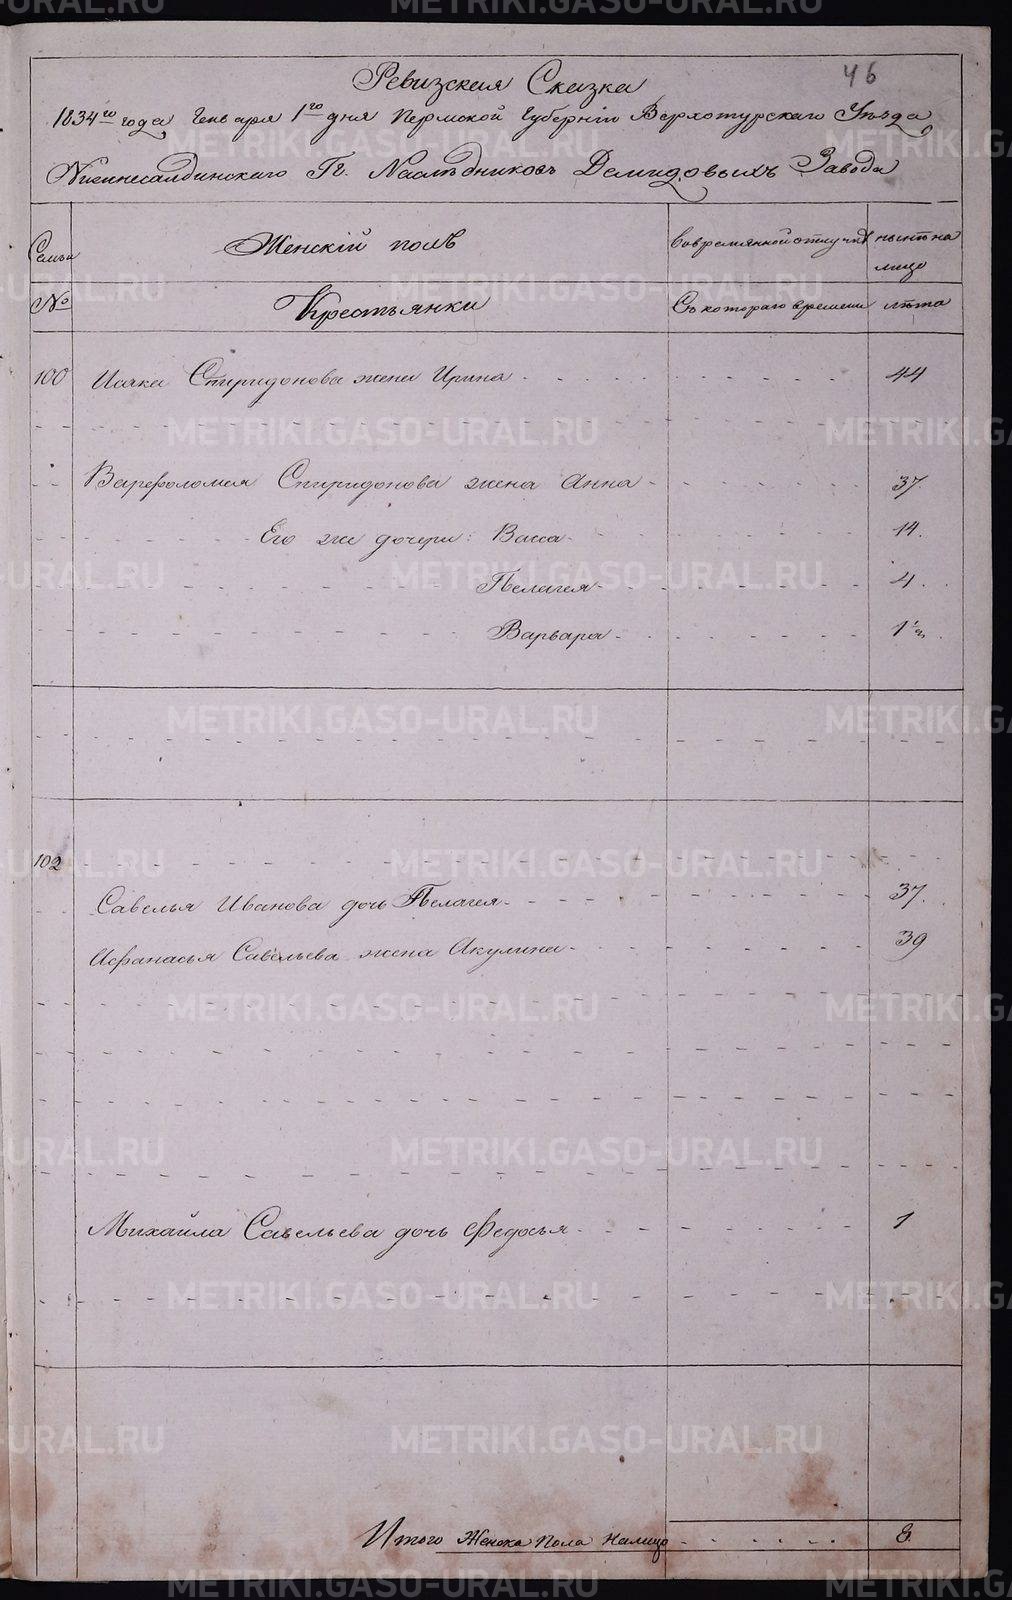 46
Ревизская Сказка
1834го года Генваря 1го дня Пермской Губерніи Верхотурскаго Уѣзда,
Нижнесалдинскаго Гг. Наслѣдниковъ Демидовыхъ Завода
Семьи Женскій полъ Во временной отлучкѣ нынѣ на лицо
№ Крестьянки Съ котораго времени лѣта
100 Исака Спиридонова жена Ирина 44
Варфоломея Спиридонова жена Анна 37.
Его же дочери: Васса 14.
Пелагея 4.
Варвара 1½.
102
Савелья Иванова дочь Пелагея 37.
Афанасья Савельева жена Акулина 39
Михайла Савельева дочь Федосья 1
Итого Женска Пола Налицо 8.
METRIKI.GASO-URAL.RU